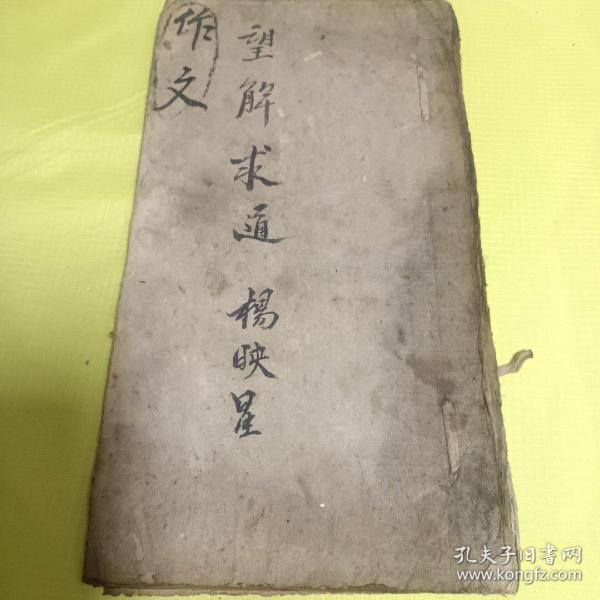 作文
望解求道 楊映星
孔夫子旧書网
www.kongfz.com